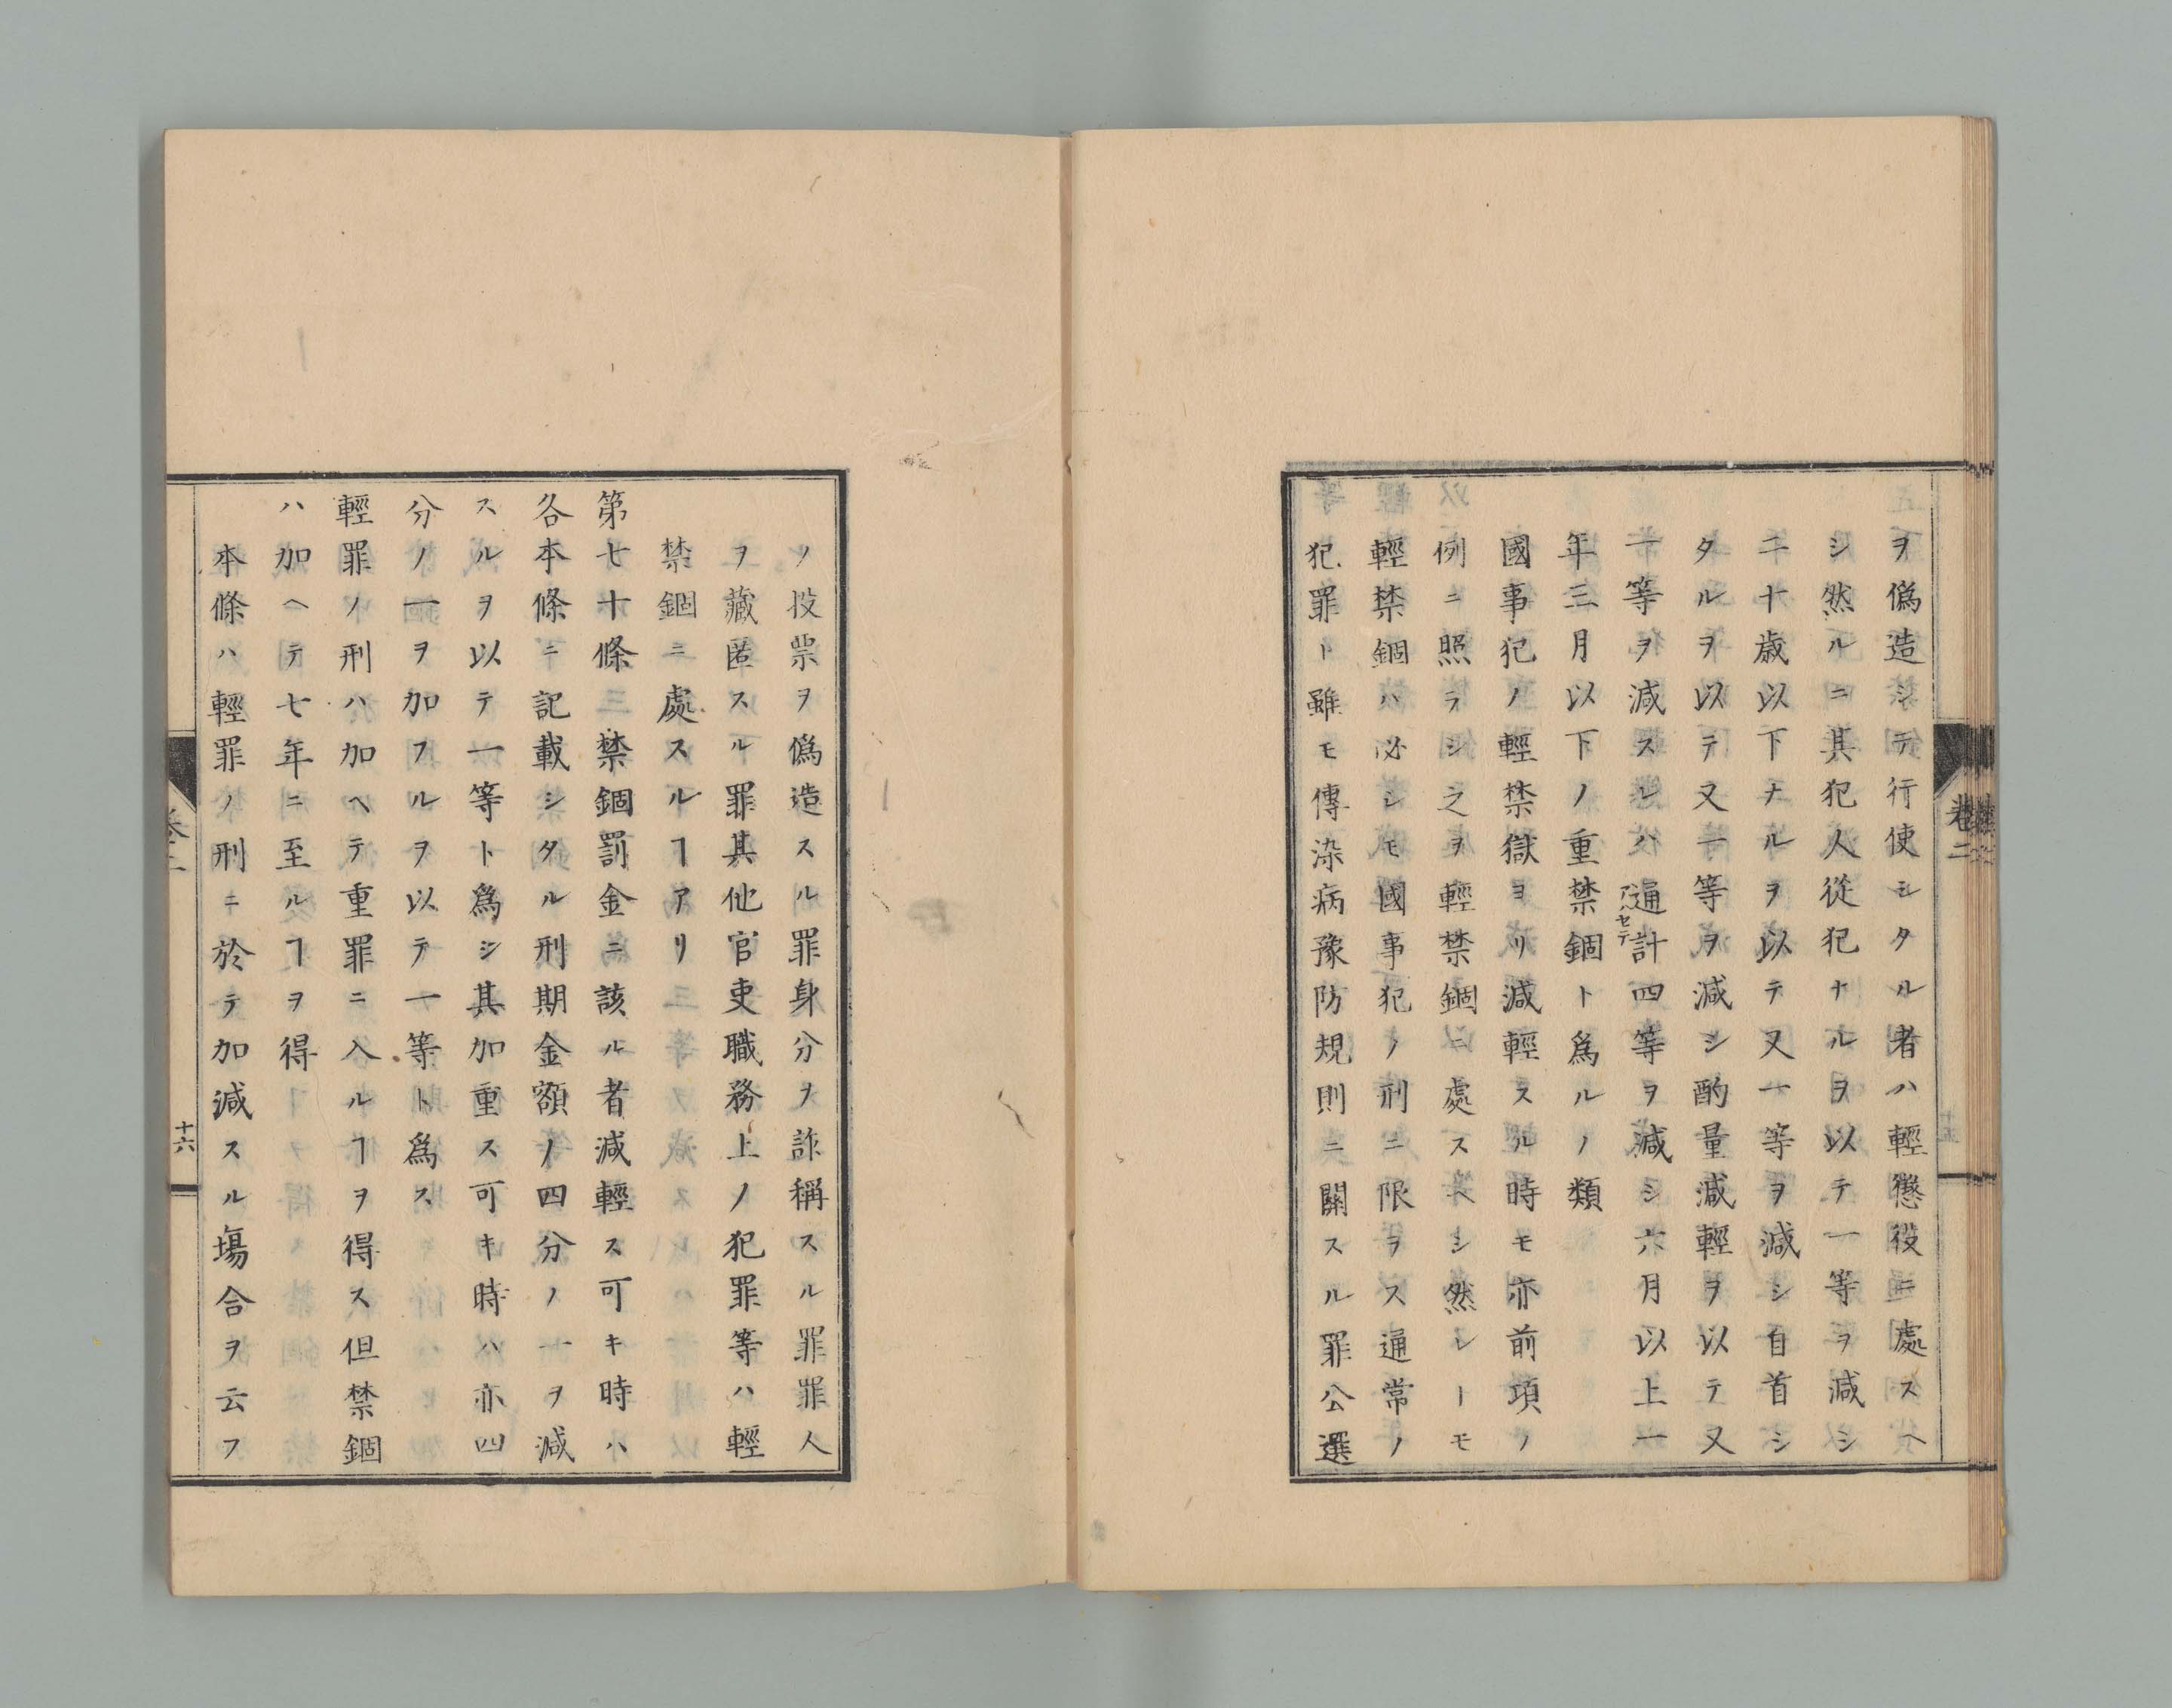 ヲ僞造シテ行使シタル者ハ輕懲役ニ處スヘ
シ然ルニ其犯人從犯ナルヲ以テ一等ヲ減シ
二十歳以下ナルヲ以テ又一等ヲ減シ自首シ
タルヲ以テ又一等ヲ減シ酌量減輕ヲ以テ又
一等ヲ減スレハ通計四等ヲ減シ六月以上一
アハセテ
年三月以下ノ重禁錮ト爲ルノ類
國事犯ノ輕禁獄ヨリ減輕スル時モ亦前項ノ
例ニ照ラシ之ヲ輕禁錮ニ處スヘシ然レㇳモ
輕禁錮ハ必シモ國事犯ノ刑ニ限ラス通常ノ
犯罪ト雖モ傳染病豫防規則ニ關スル罪公選
卷二
十五
ノ投票ヲ僞造スル罪身分ヲ詐稱スル罪罪人
ヲ藏匿スル罪其他官吏職務上ノ犯罪等ハ輕
禁錮ニ處スルヿアリ
第七十條禁錮罰金ニ該ル者減輕ス可キ時ハ
各本條ニ記載シタル刑期金額ノ四分ノ一ヲ減
スルヲ以テ一等ト爲シ其加重ス可キ時ハ亦四
分ノ一ヲ加フルヲ以テ一等ト爲ス
輕罪ノ刑ハ加ヘテ重罪ニ入ルヿヲ得ス但禁錮
ハ加ヘテ七年ニ至ルヿヲ得
本條ハ輕罪ノ刑ニ於テ加減スル塲合ヲ云フ
十六